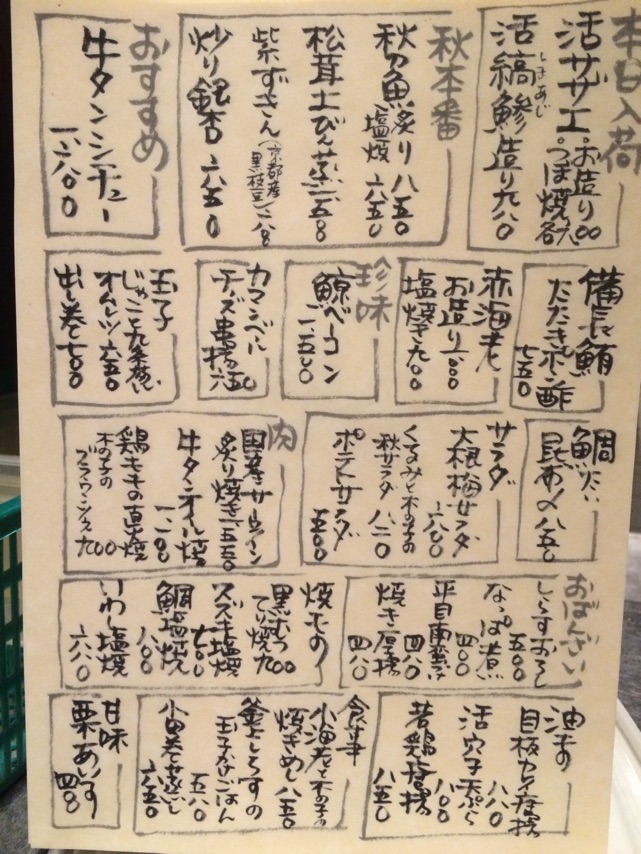 本日入荷
活サザエ・お造り
・つぼ焼
しまあじ
活縞鰺造り九八〇
秋本番
秋の魚炙り 八五〇
塩焼 六五〇
松茸土びん蒸
紫ずきん(京都産黒枝豆)
炒り銀杏 六五〇
おすすめ
牛タンシチュー
一、六八〇〇
備長鮪
たたきポン酢
七五〇
赤海老
お造り
塩焼き九〇〇
珍味
鯨ベーコン
一、五〇〇
カマンベール
チーズ串揚
六五〇
玉子
じゃこと九条葱の
オムレツ 六五〇
出し巻き七〇〇
鯛たい
昆布〆八五〇
サラダ
大根梅サラダ
六八〇
くるみと木の子の
秋サラダ 八二〇
ポテトサラダ
五〇〇
肉
国産サーロイン
炙り焼き一、五五〇
牛タンオイル焼
鶏ももの直焼
木の子の
ブラウンソース 九〇〇
おばんざい
しらすおろし
五〇〇
なっぱ煮
四〇〇
平目南蛮
四八〇
焼き厚揚
四八〇
焼もの
黒むつ
てり焼九〇〇
スズキ塩焼
七〇〇
鯛塩焼
八〇〇
いわし塩焼
六八〇
油もの
目板カレイ唐揚
活穴子天ぷら
若鶏唐揚
八五〇
食事
小海老と木の子の
焼きめし八五〇
釜上しらすの
玉子かけごはん
五八〇
小田巻き蒸し
六五〇
甘味
栗あいす
四八〇